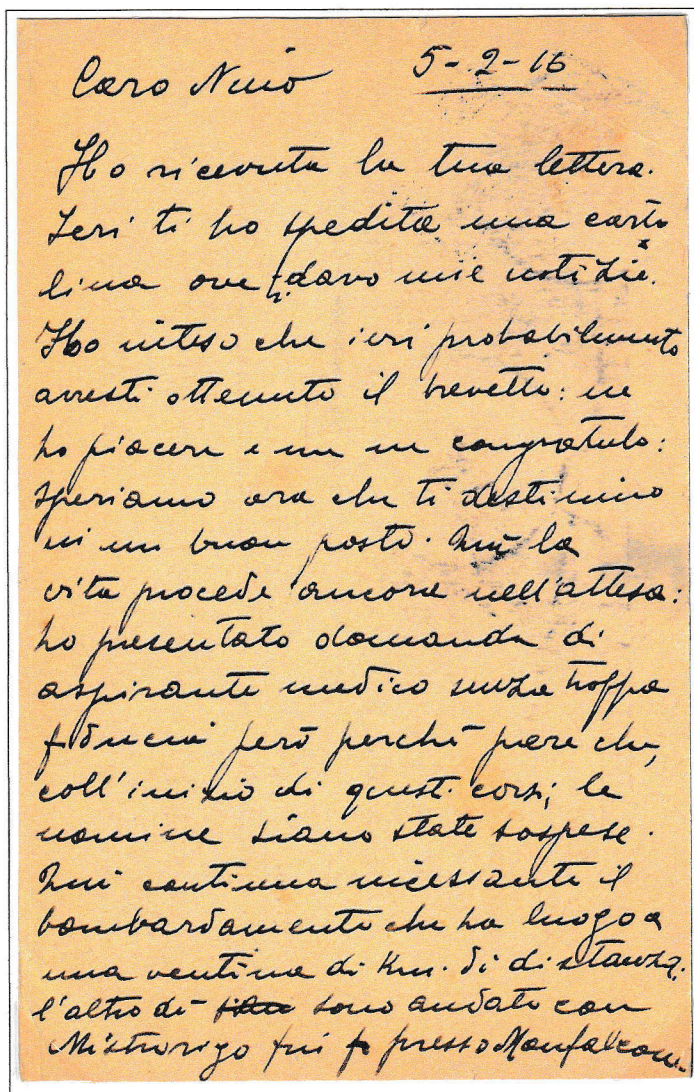 Caro Nino 5-2-16
Ho ricevuta la tua lettera.
Ieri ti ho spedita una carto
lina ove ti davo mie notizie.
Ho inteso che ieri probabilmente
avresti ottenuto il brevetto: ne
ho piacere e me ne congratulo:
speriamo ora che ti destinino
in un buon posto. Qui la
vita procede ancora nell'attesa:
ho presentato domanda di
aspirante medico senza troppa
fiducia però perchè pare che,
coll'inizio di questi corsi, le
nomine siano state sospese.
Qui continua incessante il
bombardamento che ha luogo a
una ventina di Km. di distanza.
l'altro dì sono andato con
Mistrorigo fin presso Monfalcone.